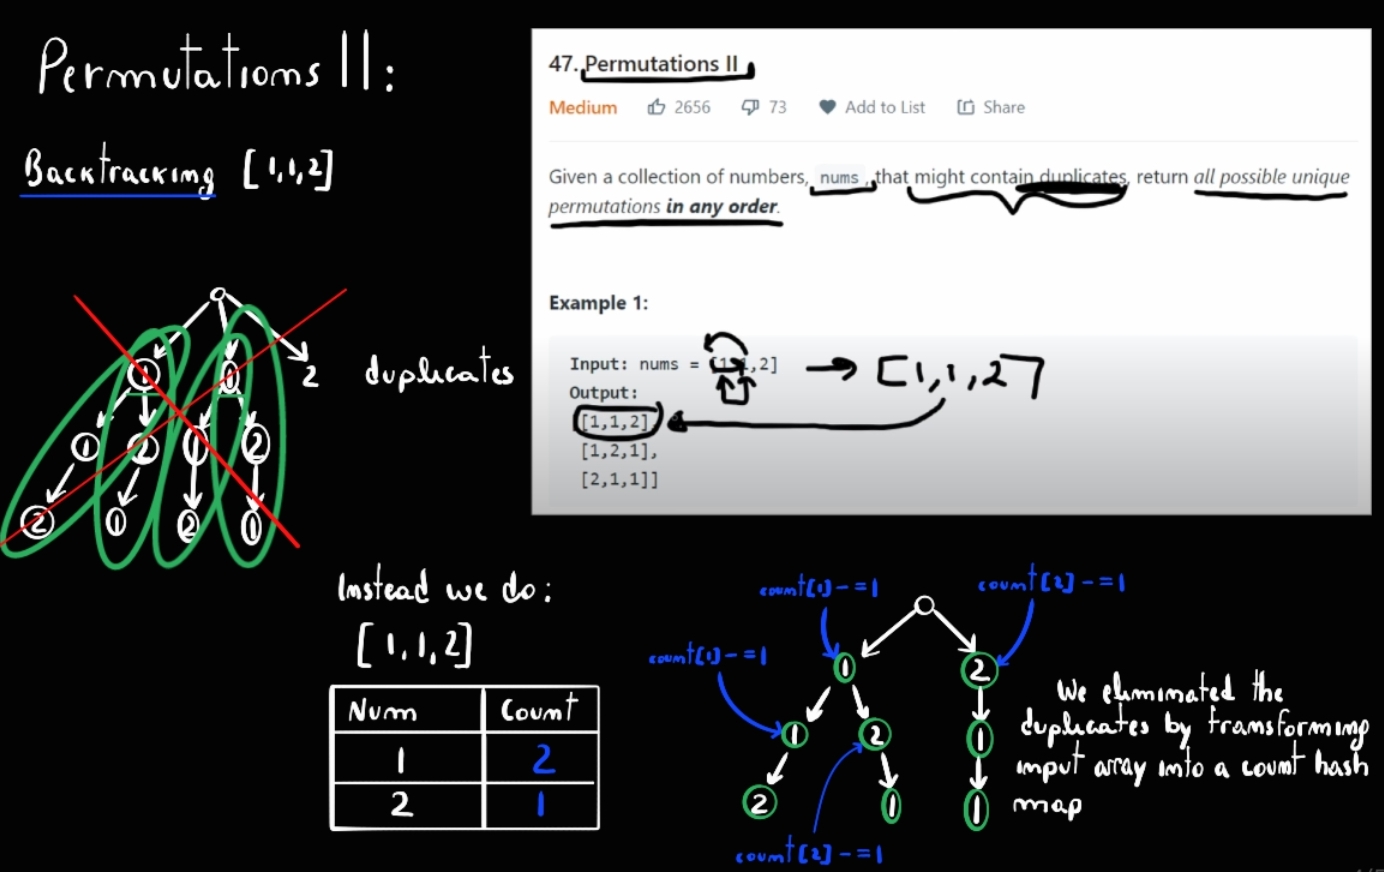 Permutations II:
Backtracking [1,1,2]
47. Permutations II
Medium 2656 73 Add to List Share
Given a collection of numbers, nums, that might contain duplicates, return all possible unique
permutations in any order.
Example 1:
Input: nums = [1,1,2] → [1,1,2]
Output:
[1,1,2],
[1,2,1],
[2,1,1]]
1 1 2 duplicates
1 2 1 2
2 1 2 1
Instead we do:
[1,1,2]
Num Count
1 2
2 1
count[1]-=1 count[2]-=1
count[1]-=1
1 2
1 2 1
2 1 1
count[2]-=1
We eliminated the
duplicates by transforming
input array into a count hash
map